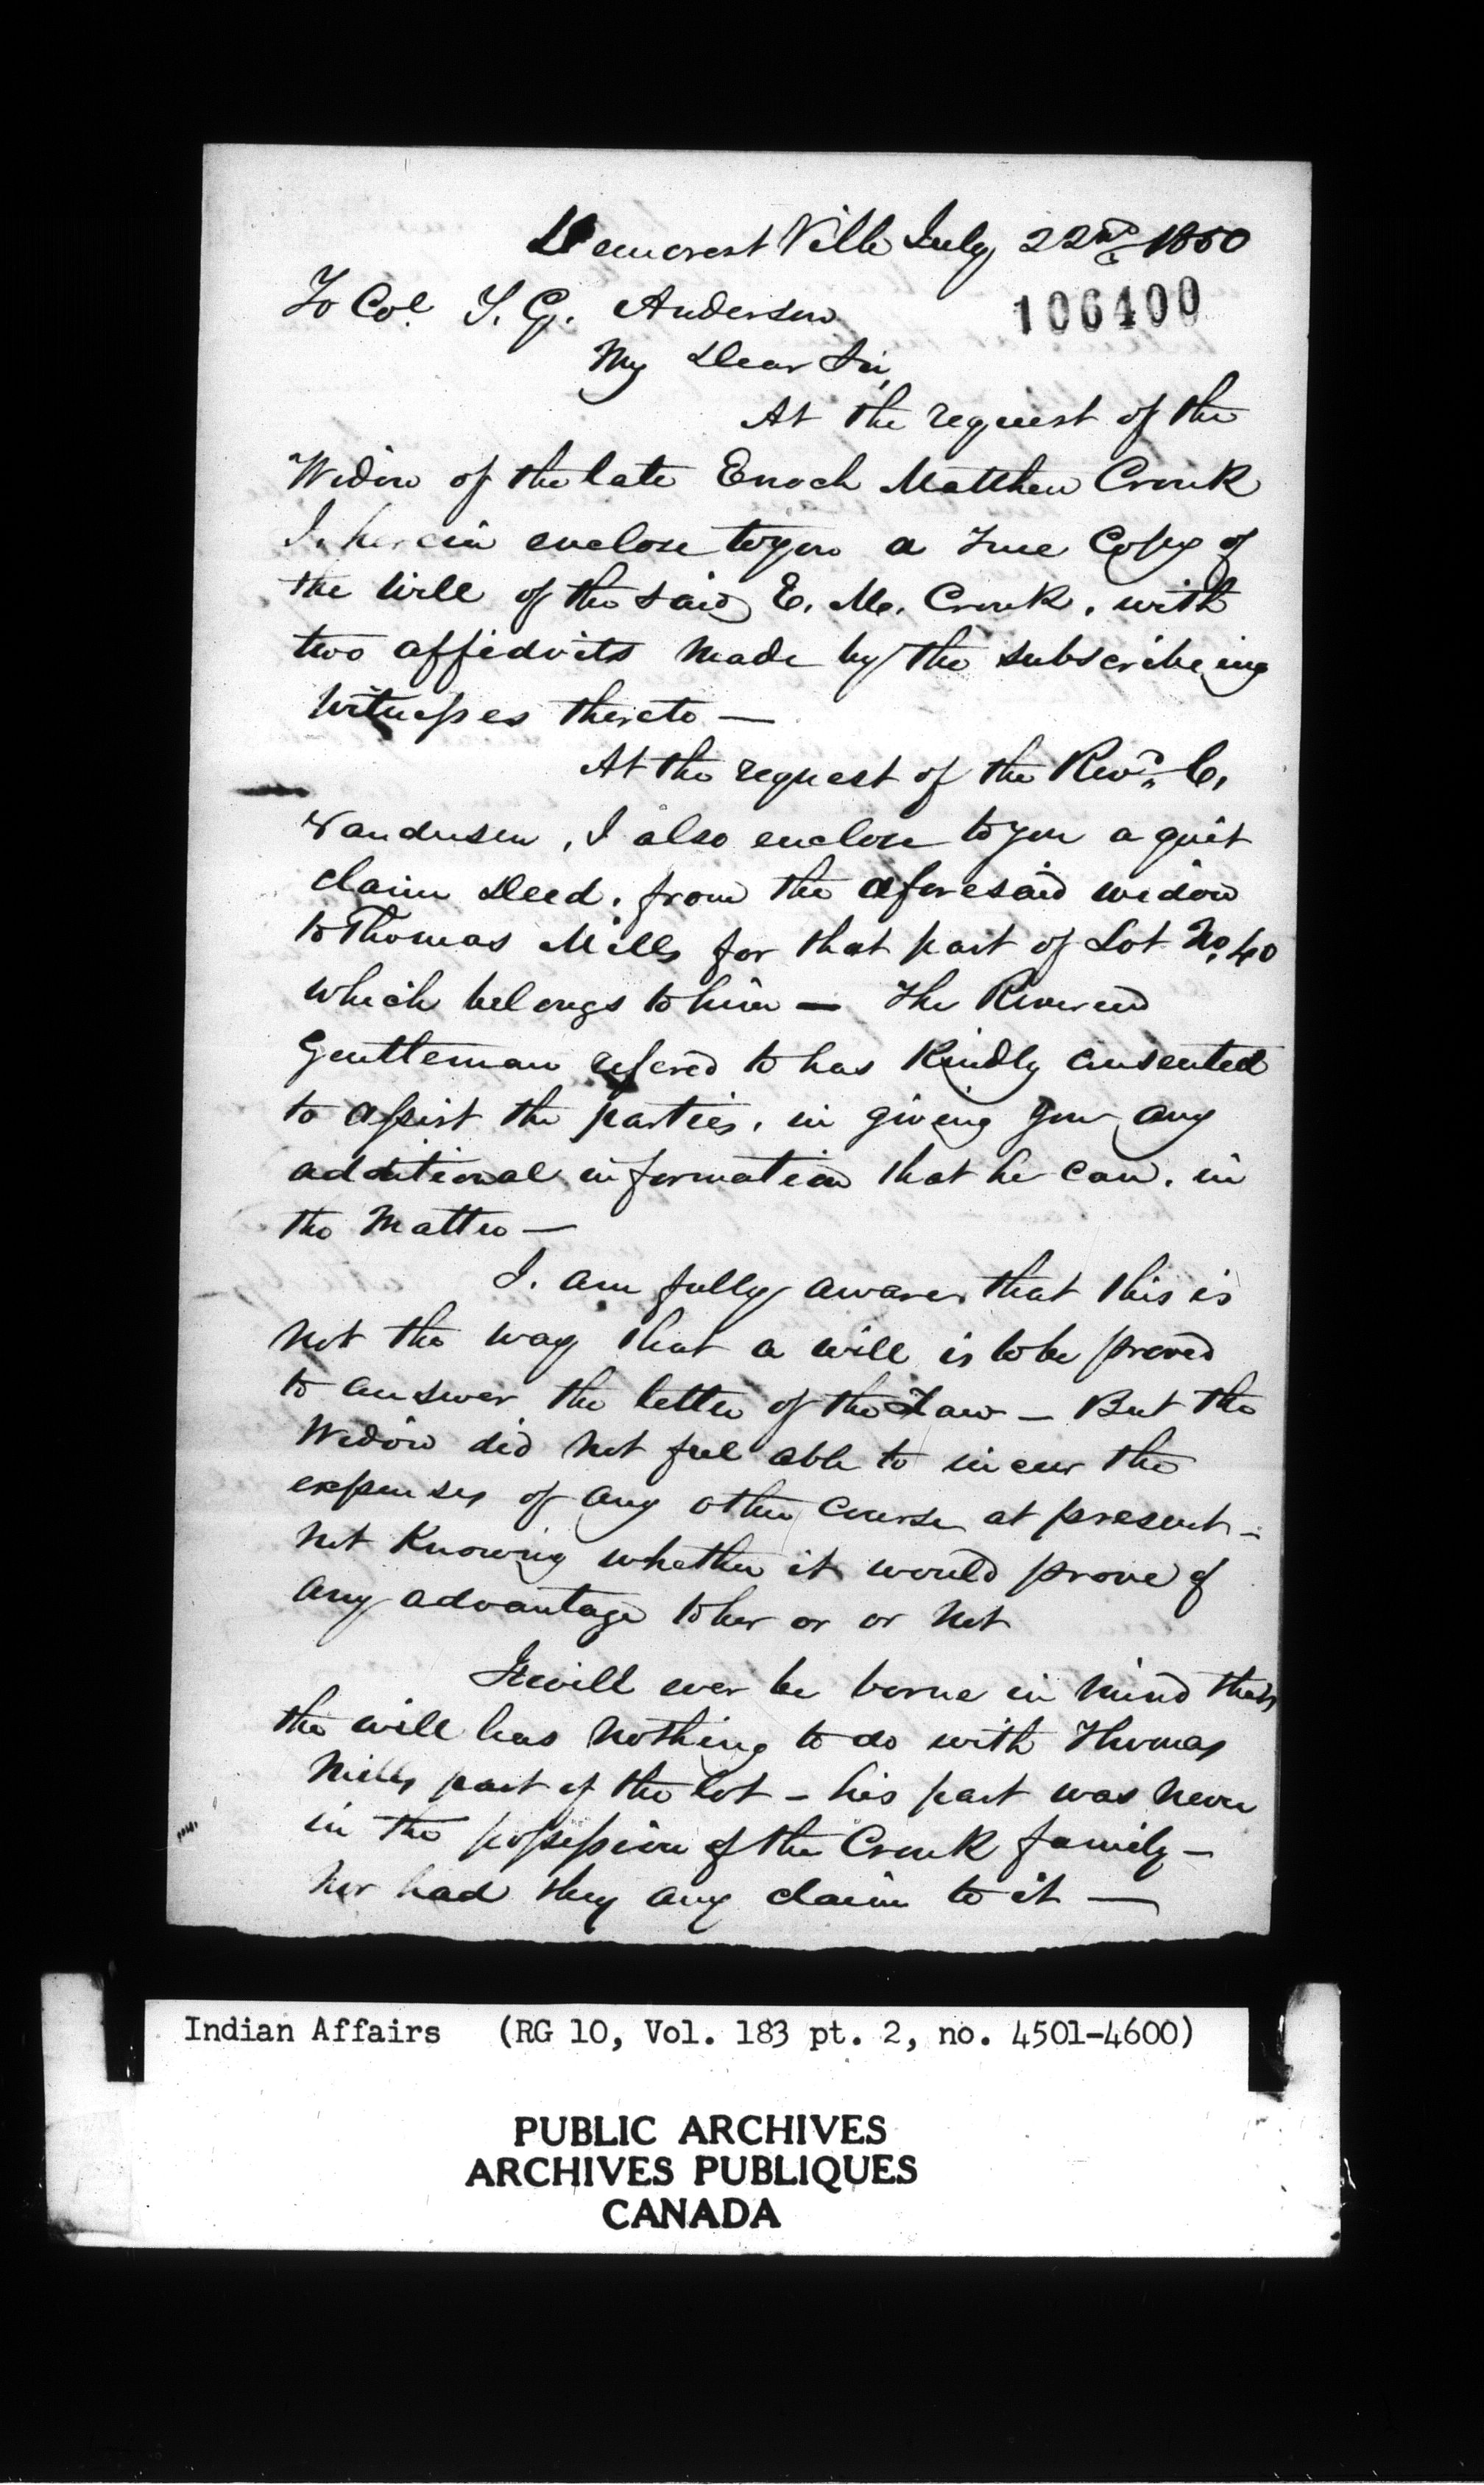 Demorest Ville July 22nd 1850
To Col. T. G. Anderson
106400
My Dear Sir,
At the request of the
Widow of the late Enoch Matthew Cronk
I. herein enclose to you a True Copy of
the Will of the said E. M. Cronk. with
two affidvits made by the subscribeing
Witnesses thereto —
At the request of the Revd. C.
Vandusen, I also enclose to you a quit
claim Deed. from the aforesaid widow
to Thomas Mills for that part of Lot No. 40
which belongs to him — The Reverend
Gentleman refered to has Kindly consented
to assist the parties. in giving you any
additional information that he can. in
the Matter —
I. am fully aware that this is
not the way that a will is to be proved
to answer the letter of the Law — But the
Widow did not feel able to incur the
expenses of any other course at present —
not Knowing whether it would prove of
any advantage to her or or not
It will ever be borne in mind that
the will has nothing to do with Thomas
Mills part of the lot — his part was never
in the possession of the Cronk family —
nor had they any claim to it —
Indian Affairs (RG 10, Vol. 183 pt. 2, no. 4501-4600)
PUBLIC ARCHIVES
ARCHIVES PUBLIQUES
CANADA